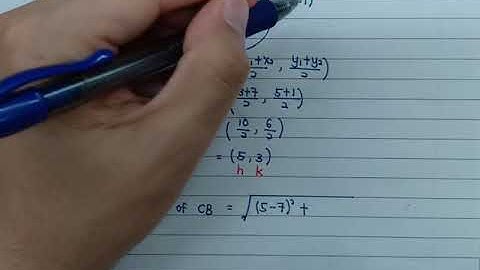 x₂/2 , y₁+y₂/2)
3+7/2 , 5+1/2)
(10/2 , 6/2)
= (5, 3)
h k
of CB = √(5-7)² +